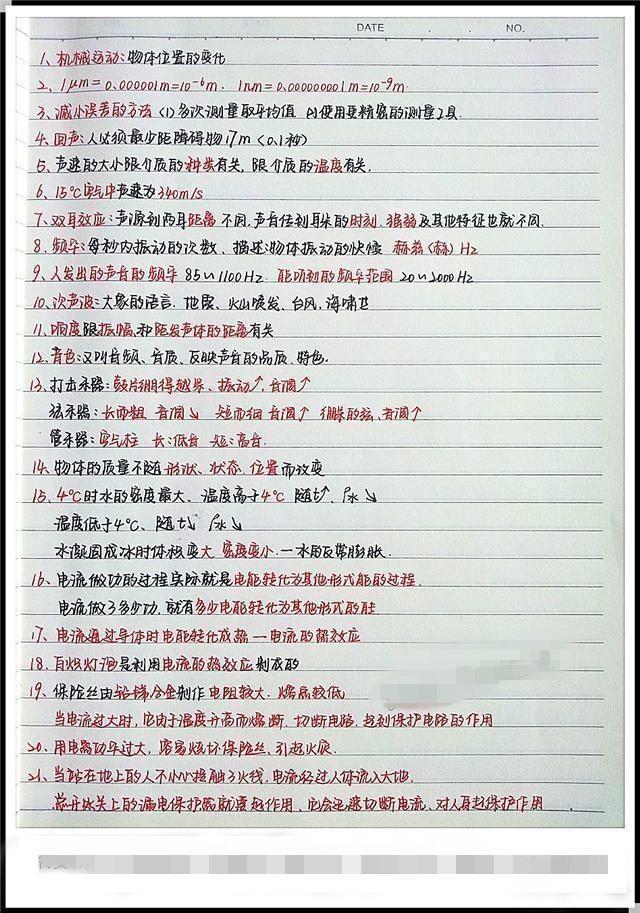 DATE . . NO.
1、机械运动:物体位置的变化
2、1μm=0.000001m=10⁻⁶m. 1nm=0.000000001m=10⁻⁹m.
3、减小误差的方法 (1)多次测量取平均值 (2)使用更精密的测量工具.
4、回声:人必须最少距障碍物17m(0.1秒)
5、声速的大小跟介质的种类有关,跟介质的温度有关.
6、15℃空气中声速为340m/s
7、双耳效应:声源到两耳距离不同,声音传到耳朵的时刻、强弱及其他特征也就不同.
8、频率:每秒内振动的次数、描述:物体振动的快慢 赫兹(赫)Hz
9、人发出的声音的频率 85~1100Hz 能听到的频率范围 20~2000Hz
10、次声波:大象的语言、地震、火山喷发、台风,海啸
11、响度跟振幅、和距发声体的距离有关
12、音色:又叫音频、音质、反映声音的品质、特色.
13、打击乐器:鼓片绷得越紧、振动↑,音调↑
弦乐器:长而粗 音调↓ 短而细 音调↑ 绷紧的弦、音调↑
管乐器:空气柱 长:低音 短:高音.
14、物体的质量不随形状、状态、位置而改变
15、4℃时水的密度最大、温度高于4℃ 随t↑、ρ水↓
温度低于4℃、随t↓ ρ水↓
水凝固成冰时体积变大 密度变小.—水的反常膨胀.
16、电流做功的过程实际就是电能转化为其他形式能的过程.
电流做了多少功,就有多少电能转化为其他形式的能
17、电流通过导体时电能转化成热—电流的热效应
18、白炽灯泡是利用电流的热效应制成的
19、保险丝由铅锑合金制作 电阻较大、熔点较低
当电流过大时,它由于温度升高而熔断、切断电路,起到保护电路的作用
20、用电器功率过大,容易烧坏保险丝、引起火灾.
21、当站在地上的人不小心接触了火线,电流经过人体流入大地.
总开关上的漏电保护器就要起作用、它会迅速切断电流、对人身起保护作用.